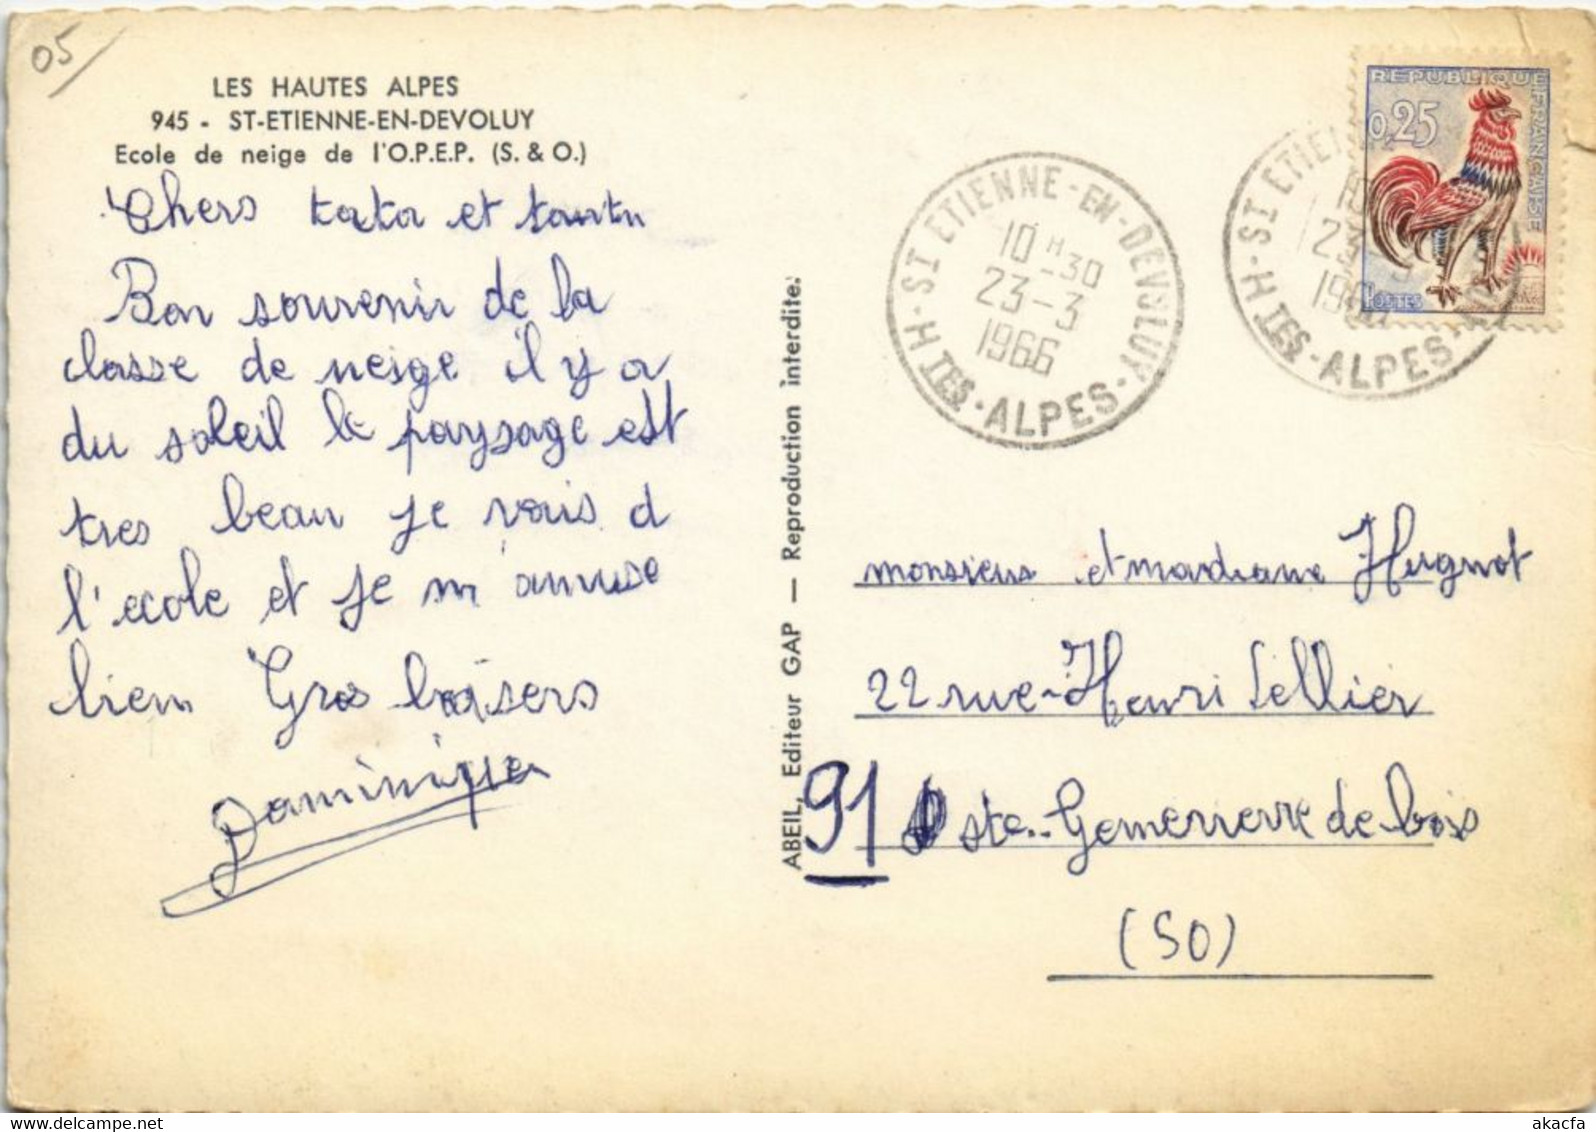 05
LES HAUTES ALPES
945 - ST-ETIENNE-EN-DEVOLUY
Ecole de neige de l'O.P.E.P. (S. & O.)
Chers tata et
Bon souvenir de la
classe de neige il y a
du soleil le paysage est
tres beau je vais a
l'ecole et je m'amuse
bien Gros baisers
Dominique
ABEIL, Editeur GAP — Reproduction interdite.
ST ETIENNE-EN-DEVOLUY
10 H 30
23-3
1966
HTES-ALPES
ST ETIEN
23
19
HTES-ALPES
REPUBLIQUE FRANÇAISE
0,25
POSTES
monsieur et madame Hugnot
22 rue-Henri Sellier
91 ste-Gemerrerre de bois
(SO)
www.delcampe.net
akacfa